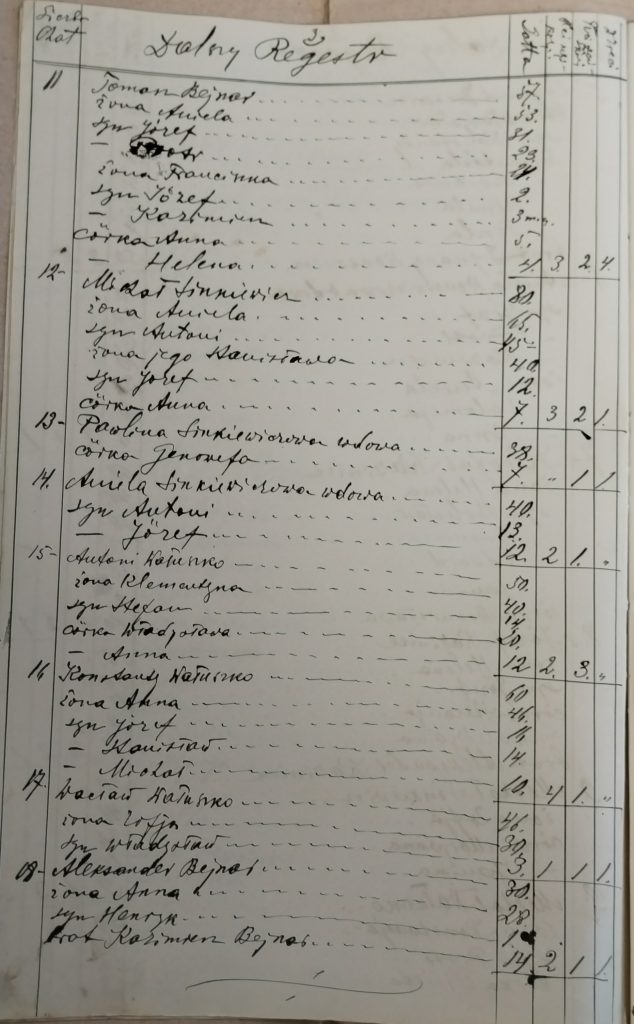 3
Dalszy Regestr
Liczba Chat
Latta
Dzieci
11 Toman Bejnar 57.
żona Aniela 53.
syn Józef 31.
— Piotr 23.
żona Francinka 21.
syn Józef 2.
— Kazimierz 3 m.
córka Anna 5.
— Helena 4. 3. 2. 4.
12- Michał Sinkiewicz 80.
żona Aniela 65.
syn Antoni 45
żona jego Stanisława 40
syn Józef 12.
córka Anna 7. 3 2 1.
13- Pawlina Sinkiewiczowa wdowa 38.
córka Genowefa 7. " 1 1
14. Aniela Sinkiewiczowa wdowa 40.
syn Antoni 13.
— Józef 12. 2 1. "
15- Antoni Watuszko 50.
żona Klementyna 40.
syn Stefan 14.
córka Władysława 20.
— Anna 12 2. 3. "
16 Konstanty Watuszko 60
żona Anna 46.
syn Józef 16
— Stanisław 14.
— Michał 10. 4 1. "
17. Wacław Watuszko 46.
żona Zofja 30.
syn Władysław 3. 1 1 1.
18- Aleksander Bejnar 30.
żona Anna 28.
syn Henryk 1.
brat Kazimierz Bejnar 14. 2 1 1.